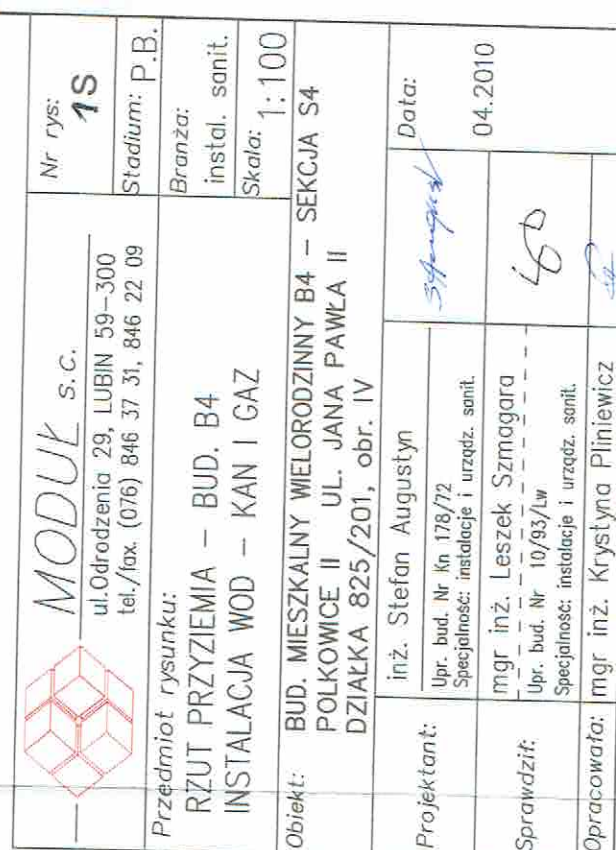 MODUŁ s.c.
ul.Odrodzenia 29, LUBIN 59-300
tel./fax. (076) 846 37 31, 846 22 09
Nr rys:
1S
Stadium: P.B.
Przedmiot rysunku:
RZUT PRZYZIEMIA – BUD. B4
INSTALACJA WOD – KAN I GAZ
Branża:
instal. sanit.
Skala: 1:100
Obiekt: BUD. MIESZKALNY WIELORODZINNY B4 – SEKCJA S4
POLKOWICE II UL. JANA PAWŁA II
DZIAŁKA 825/201, obr. IV
Projektant: inż. Stefan Augustyn
Upr. bud. Nr Kn 178/72
Specjalność: instalacje i urządz. sanit.
Data:
04.2010
Sprawdził: mgr inż. Leszek Szmagara
Upr. bud. Nr 10/93/Lw
Specjalność: instalacje i urządz. sanit.
Opracowała: mgr inż. Krystyna Pliniewicz